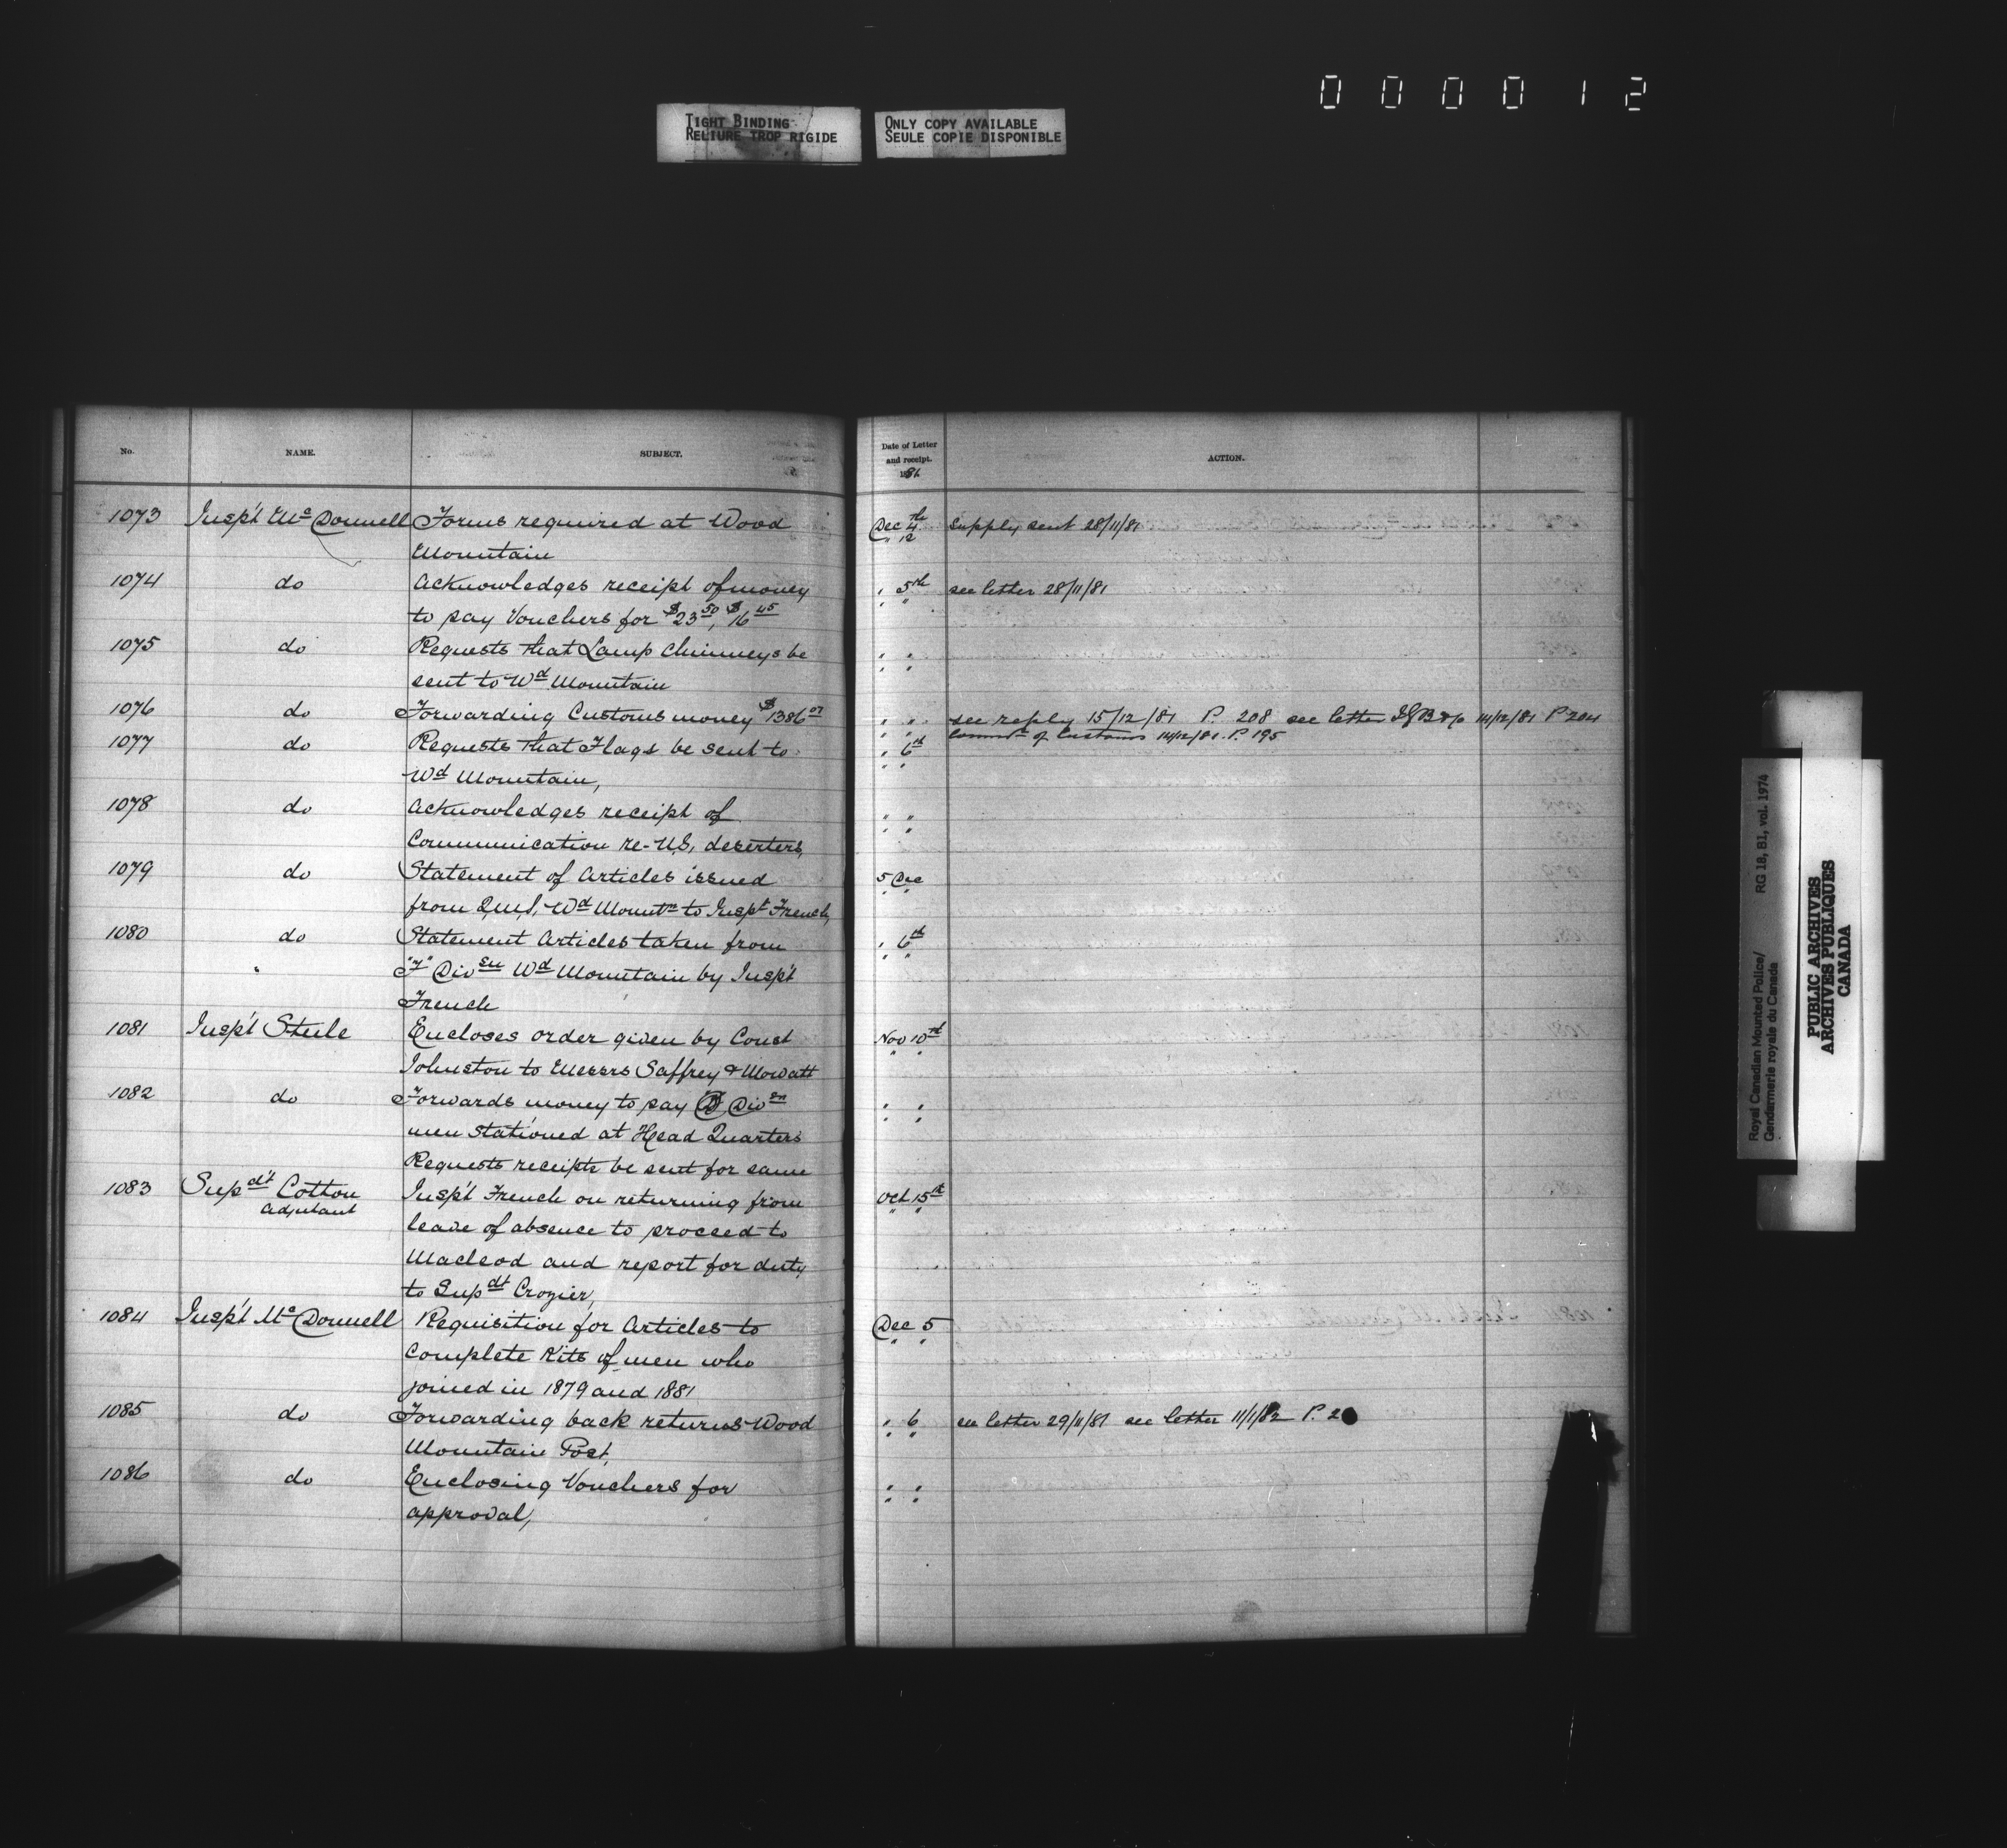 0 0 0 0 1 2
TIGHT BINDING
RELIURE TROP RIGIDE
ONLY COPY AVAILABLE
SEULE COPIE DISPONIBLE
No. NAME. SUBJECT. Date of Letter and receipt. 1881 ACTION.
1073 Insp't Mc Donnell Forms required at Wood Dec 4th Supply sent 28/11/81
Mountain " 12
1074 do Acknowledges receipt of money " 5th see letter 28/11/81
to pay Vouchers for $23.50, $16.45 " "
1075 do Requests that Lamp Chimneys be " "
sent to Wd Mountain " "
1076 do Forwarding Customs money $1386.07 " " see reply 15/12/81 P. 208 see letter 14/12/81 P 204
" " Commr of Customs 14/12/81 P. 195
1077 do Requests that Flags be sent to " 6th
Wd Mountain, " "
1078 do Acknowledges receipt of " "
Communication re- U.S. deserters, " "
1079 do Statement of Articles issued 5 Dec
from Q.M.S. Wd Mountn to Inspt French, " "
1080 do Statement Articles taken from " 6th
"F" Divsn Wd Mountain by Insp't " "
French
1081 Insp't Steele Encloses order given by Const Nov 10th
Johnston to Messrs Saffrey & Mowatt " "
1082 do Forwards money to pay Divsn " "
men stationed at Head Quarters " "
Requests receipts be sent for same
1083 Supdt Cotton Insp't French on returning from Oct 15th
Adjutant leave of absence to proceed to " "
Macleod and report for duty
to Supdt Crozier,
1084 Insp't Mc Donnell Requisition for Articles to Dec 5
Complete Kits of men who " "
joined in 1879 and 1881
1085 do Forwarding back returns Wood " 6 see letter 29/11/81 see letter 11/1/82 P. 2
Mountain Post, " "
1086 do Enclosing Vouchers for " "
approval, " "
Royal Canadian Mounted Police/ RG 18, B1, vol. 1974
Gendarmerie royale du Canada
PUBLIC ARCHIVES
ARCHIVES PUBLIQUES
CANADA